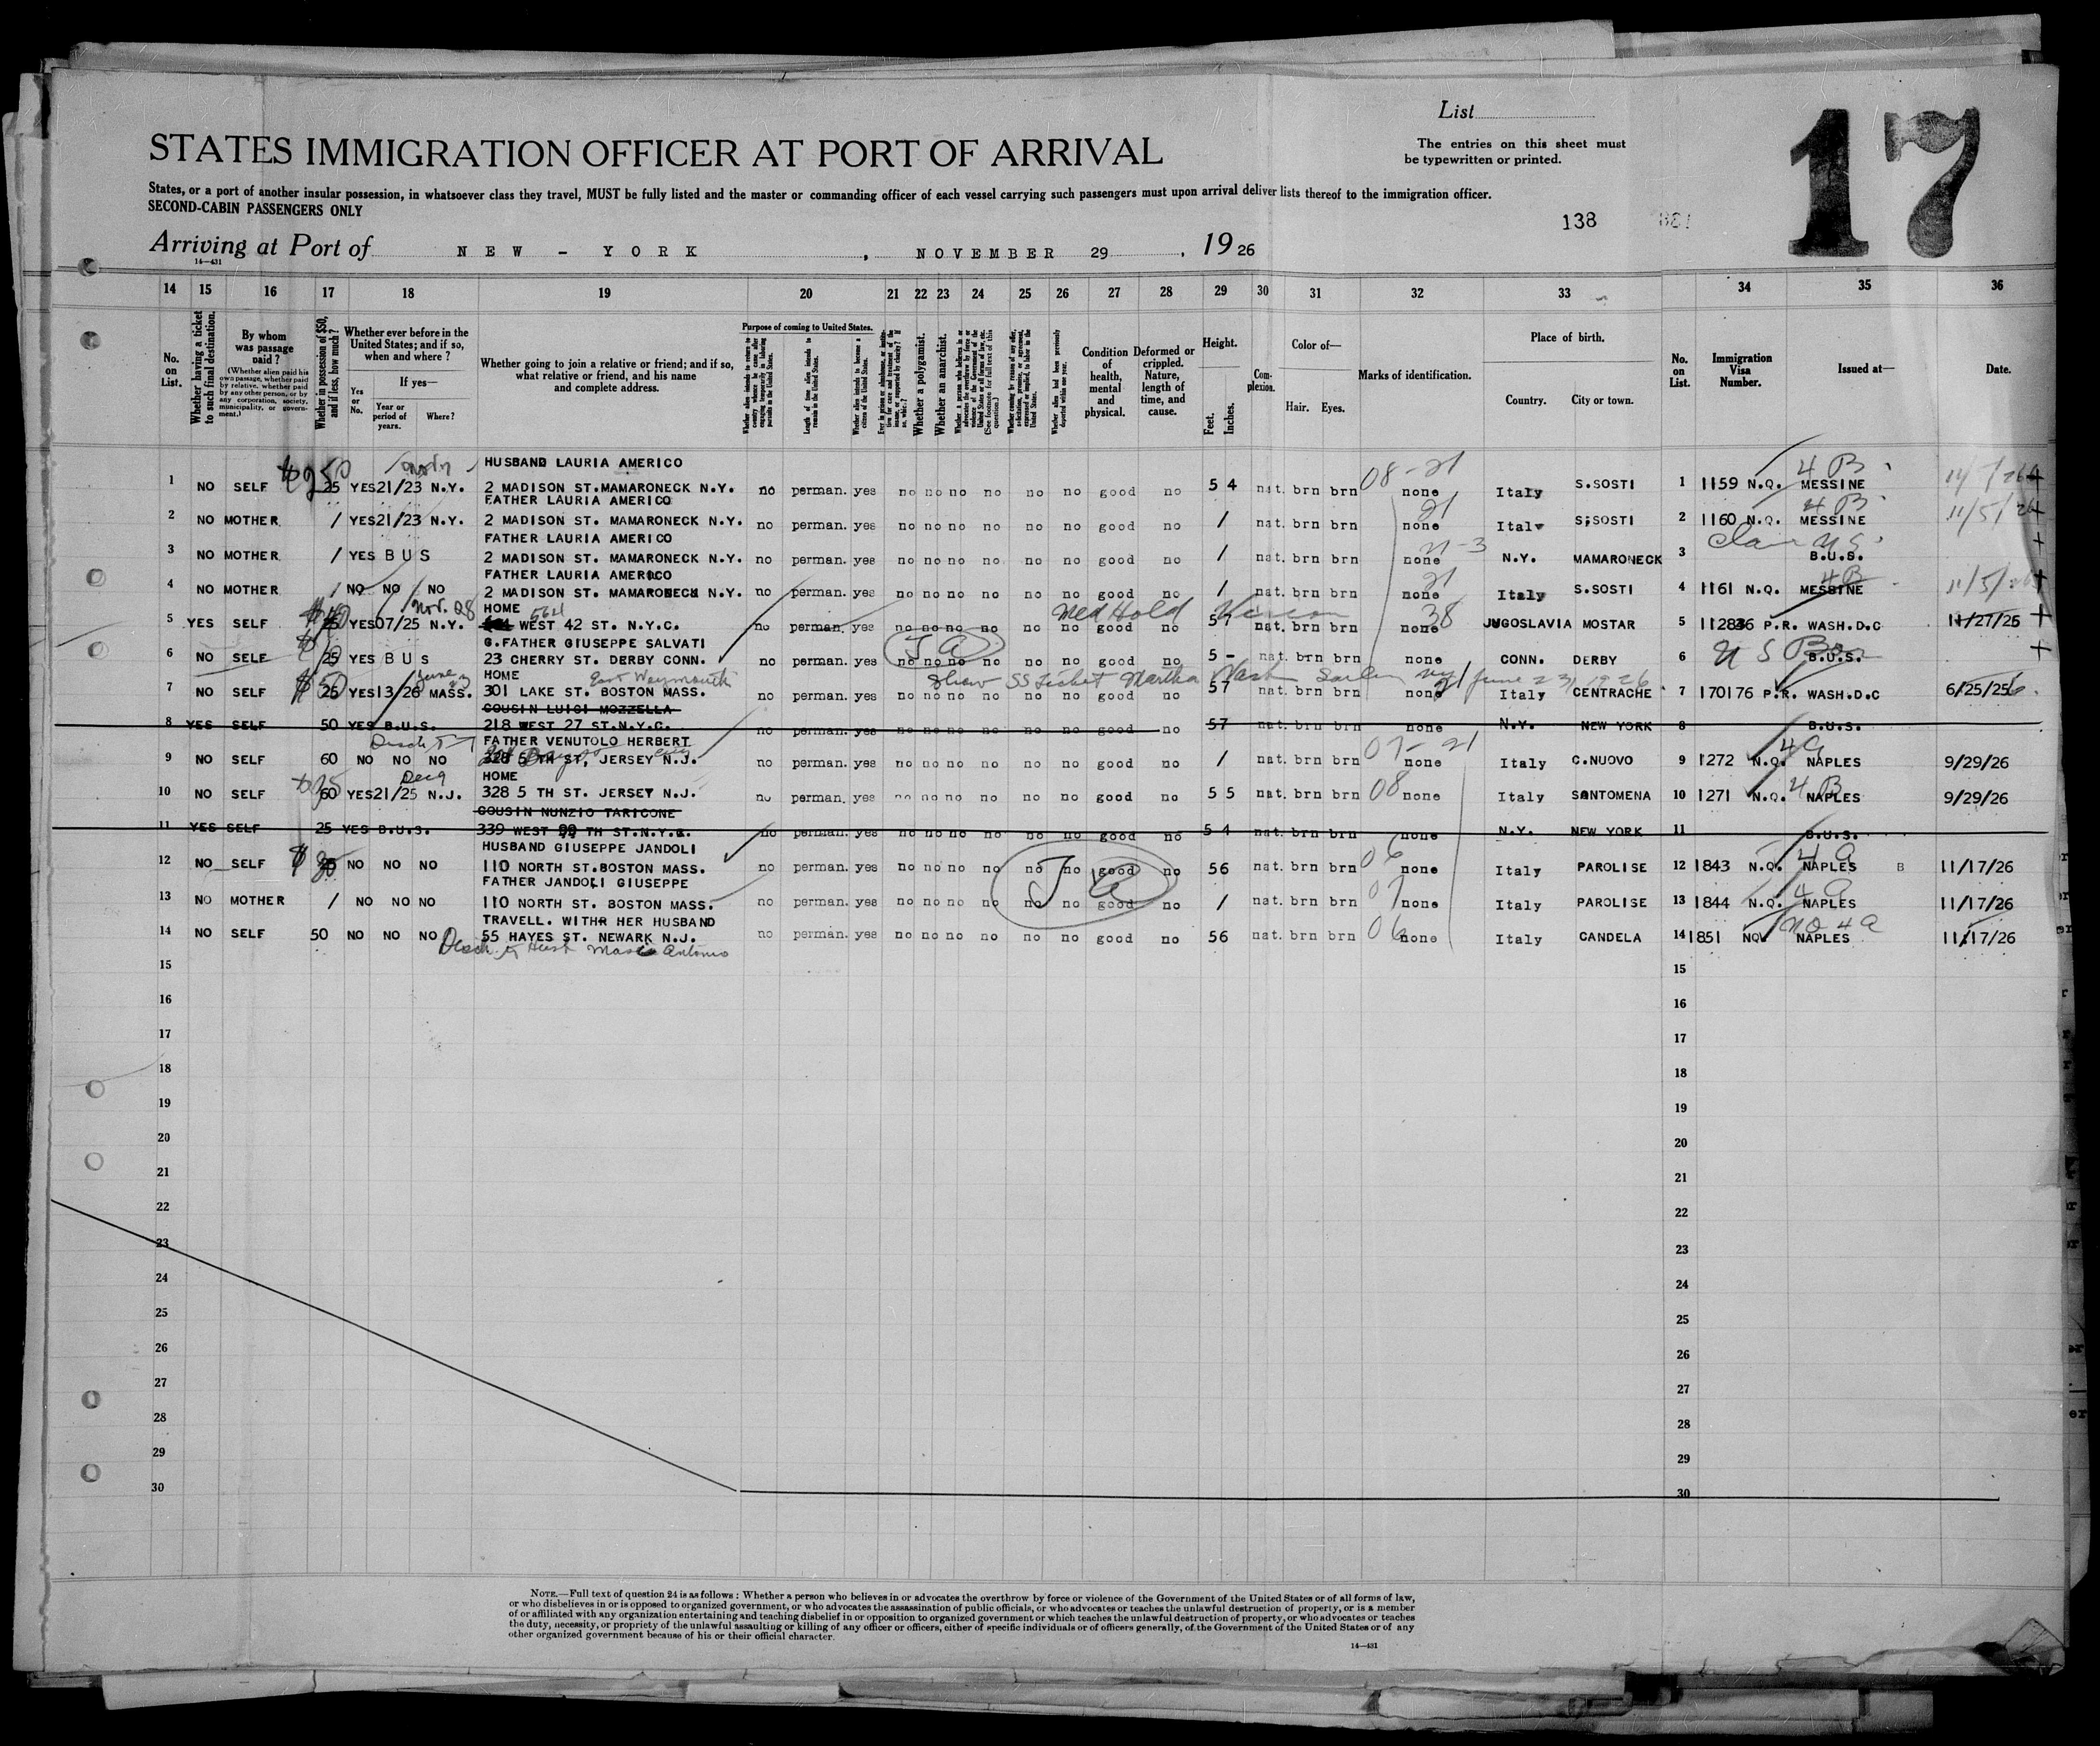 List
The entries on this sheet must
be typewritten or printed.
17
STATES IMMIGRATION OFFICER AT PORT OF ARRIVAL
States, or a port of another insular possession, in whatsoever class they travel, MUST be fully listed and the master or commanding officer of each vessel carrying such passengers must upon arrival deliver lists thereof to the immigration officer.
SECOND-CABIN PASSENGERS ONLY
138
Arriving at Port of NEW - YORK, NOVEMBER 29, 1926
14—431
14 15 16 17 18 19 20 21 22 23 24 25 26 27 28 29 30 31 32 33 34 35 36
No. on List.
Whether having a ticket to such final destination.
By whom was passage paid?
(Whether alien paid his own passage, whether paid by relative, whether paid by any other person, or by any corporation, society, municipality, or government.)
Whether in possession of $50, and if less, how much?
Whether ever before in the United States; and if so, when and where?
Yes or No.
If yes—
Year or period of years.
Where?
Whether going to join a relative or friend; and if so, what relative or friend, and his name and complete address.
Purpose of coming to United States.
Length of time alien intends to remain in the United States.
Whether alien intends to become a citizen of the United States.
Whether a polygamist.
Whether an anarchist.
Condition of health, mental and physical.
Deformed or crippled. Nature, length of time, and cause.
Height.
Feet. Inches.
Complexion.
Color of—
Hair. Eyes.
Marks of identification.
Place of birth.
Country. City or town.
No. on List.
Immigration Visa Number.
Issued at—
Date.
HUSBAND LAURIA AMERICO
1 NO SELF $250 25 YES 21/23 N.Y. 2 MADISON ST. MAMARONECK N.Y. no perman. yes no no no no no no good no 5 4 nat. brn brn none Italy S.SOSTI 1 1159 N.Q. MESSINE 4 B
08-21
FATHER LAURIA AMERICO
2 NO MOTHER / YES 21/23 N.Y. 2 MADISON ST. MAMARONECK N.Y. no perman. yes no no no no no no good no / nat. brn brn none Italy S;SOSTI 2 1160 N.Q. MESSINE 4 B 11/5/26
21
FATHER LAURIA AMERICO
3 NO MOTHER / YES B U S 2 MADISON ST. MAMARONECK N.Y. no perman. yes no no no no no no good no / nat. brn brn none N.Y. MAMARONECK 3 B.U.S.
FATHER LAURIA AMERICO
4 NO MOTHER / NO NO NO 2 MADISON ST. MAMARONECK N.Y. no perman. yes no no no no no no good no / nat. brn brn none Italy S.SOSTI 4 1161 N.Q. MESSINE 4B 11/5/
21
HOME
5 YES SELF 25 YES 07/25 N.Y. Nov. 28 564 WEST 42 ST. N.Y.C. no perman. yes no no no no no no good no 5 7 nat. brn brn none JUGOSLAVIA MOSTAR 5 112836 P.R. WASH.D.C 11/27/25
Med Hold
38
G.FATHER GIUSEPPE SALVATI
6 NO SELF 25 YES B U S 23 CHERRY ST. DERBY CONN. no perman. yes no no no no no no good no 5 - nat. brn brn none CONN. DERBY 6 B.U.S.
U S Born
HOME East Weymouth
7 NO SELF $50 25 YES 13/26 MASS. 301 LAKE ST. BOSTON MASS. no perman. yes no no no no no no good no 5 7 nat. brn brn none Italy CENTRACHE 7 170176 P.R. WASH.D.C 6/25/256
Show SS Ticket Martha Wash June 23, 1926
COUSIN LUIGI MOZZELLA
8 YES SELF 50 YES B.U.S. 218 WEST 27 ST.N.Y.C. no perman. yes no no no no no no good no 57 nat. brn brn none N.Y. NEW YORK 8 B.U.S.
FATHER VENUTOLO HERBERT
9 NO SELF 60 NO NO NO 328 5 TH ST, JERSEY N.J. no perman. yes no no no no no no good no / nat. brn brn none Italy C.NUOVO 9 1272 N.Q. NAPLES 9/29/26
HOME
10 NO SELF 60 YES 21/25 N.J. 328 5 TH ST. JERSEY N.J. no perman. yes no no no no no no good no 5 5 nat. brn brn 08 none Italy SANTOMENA 10 1271 N.Q. 4 B NAPLES 9/29/26
COUSIN NUNZIO TARICONE
11 YES SELF 25 YES B.U.S. 339 WEST 99 TH ST.N.Y.C. no perman. yes no no no no no no good no 5 4 nat. brn brn none N.Y. NEW YORK 11 B.U.S.
HUSBAND GIUSEPPE JANDOLI
12 NO SELF NO NO NO 110 NORTH ST.BOSTON MASS. no perman. yes no no no no no no good no 56 nat. brn brn 06 none Italy PAROLISE 12 1843 N.Q. 4 a NAPLES B 11/17/26
FATHER JANDOLI GIUSEPPE
13 NO MOTHER / NO NO NO 110 NORTH ST. BOSTON MASS. no perman. yes no no no no no no good no / nat. brn brn 07 none Italy PAROLISE 13 1844 N.Q. 4 a NAPLES 11/17/26
TRAVELL. WITHR HER HUSBAND
14 NO SELF 50 NO NO NO 55 HAYES ST. NEWARK N.J. no perman. yes no no no no no no good no 56 nat. brn brn 06 none Italy CANDELA 14 1851 NQ NAPLES 11/17/26
15 15
16 16
17 17
18 18
19 19
20 20
21 21
22 22
23 23
24 24
25 25
26 26
27 27
28 28
29 29
30 30
NOTE.—Full text of question 24 is as follows: Whether a person who believes in or advocates the overthrow by force or violence of the Government of the United States or of all forms of law,
or who disbelieves in or is opposed to organized government, or who advocates the assassination of public officials, or who advocates or teaches the unlawful destruction of property, or is a member
of or affiliated with any organization entertaining and teaching disbelief in or opposition to organized government or which teaches the unlawful destruction of property, or who advocates or teaches
the duty, necessity, or propriety of the unlawful assaulting or killing of any officer or officers, either of specific individuals or of officers generally, of the Government of the United States or of any
other organized government because of his or their official character.
14—431